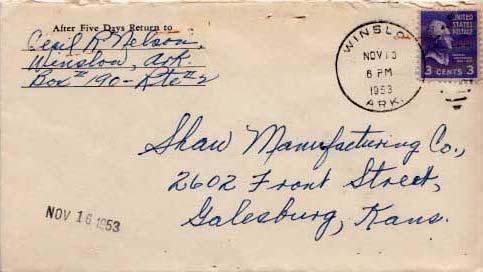 After Five Days Return to
Cecil R Nelson,
Winslow, Ark.
Box #190 - Rte #2
WINSLO
NOV 13
6 PM
1953
ARK.
UNITED
STATES
POSTAGE
3 CENTS 3
Shaw Manufacturing Co.,
2602 Front Street,
Galesburg, Kans.
NOV 16 1953